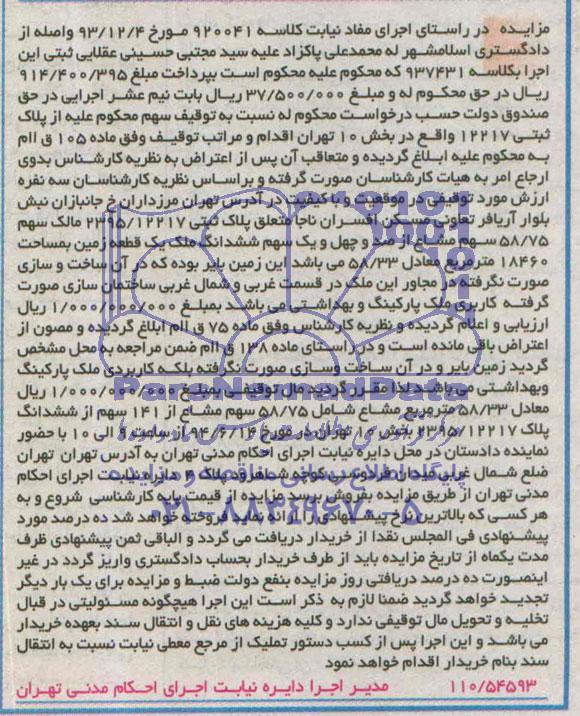 مزایده در راستای اجرای مفاد نیابت کلاسه ۹۲۰۰۴۱ مورخ ۹۳/۱۲/۴ واصله از
دادگستری اسلامشهر له محمدعلی پاکزاد علیه سید مجتبی حسینی عقلایی ثبتی این
اجرا بکلاسه ۹۳۷۴۳۱ که محکوم علیه محکوم است بپرداخت مبلغ ۹۱۴/۴۰۰/۳۹۵
ریال در حق محکوم له و مبلغ ۳۷/۵۰۰/۰۰۰ ریال بابت نیم عشر اجرایی در حق
صندوق دولت حسب درخواست محکوم له نسبت به توقیف سهم محکوم علیه از پلاک
ثبتی ۱۲۲۱۷ واقع در بخش ۱۰ تهران اقدام و مراتب توقیف وفق ماده ۱۰۵ ق اام
به محکوم علیه ابلاغ گردیده و متعاقب آن پس از اعتراض به نظریه کارشناس بدوی
ارجاع امر به هیات کارشناسان صورت گرفته و براساس نظریه کارشناسان سه نفره
ارزش مورد توقیفی در موقعیت و با کیفیت در آدرس تهران مرزداران خ جانبازان نبش
بلوار آریافر تعاونی مسکن افسران ناجا متعلق پلاک ثبتی ۲۳۹۵/۱۲۲۱۷ مالک سهم
۵۸/۷۵ سهم مشاع از صد و چهل و یک سهم ششدانگ ملک یک قطعه زمین بمساحت
۱۸۴۶۰ مترمربع معادل ۵۸/۳۳ می باشد این زمین بایر بوده که در آن ساخت و سازی
صورت نگرفته در مجاور این ملک در قسمت غربی و شمال غربی ساختمان سازی صورت
گرفته کاربری ملک پارکینگ و بهداشتی می باشد بمبلغ ۱/۰۰۰/۰۰۰/۰۰۰ ریال
ارزیابی و اعلام گردیده و نظریه کارشناس وفق ماده ۷۵ ق اام ابلاغ گردیده و مصون از
اعتراض باقی مانده است و در راستای ماده ۱۳۸ ق اام ضمن مراجعه به محل مشخص
گردید زمین بایر و در آن ساخت وسازی صورت نگرفته بلکه کاربردی ملک پارکینگ
وبهداشتی می باشد لذا مقرر گردید مال توقیفی بمبلغ ۱/۰۰۰/۰۰۰/۰۰۰ ریال
معادل ۵۸/۳۳ مترمربع مشاع شامل ۵۸/۷۵ سهم مشاع از ۱۴۱ سهم از ششدانگ
پلاک ۲۳۹۵/۱۲۲۱۷ بخش ۱۰ تهران در مورخ ۹۴/۶/۱۴ از ساعت ۹ الی ۱۰ با حضور
نماینده دادستان در محل دایره نیابت اجرای احکام مدنی تهران به آدرس تهران تهران
ضلع شمال غربی میدان فردوسی کوچه شاهرود پلاک ۴ دایره نیابت اجرای احکام
مدنی تهران از طریق مزایده بفروش برسد مزایده از قیمت پایه کارشناسی شروع و به
هر کسی که بالاترین نرخ پیشنهادی را ارائه نماید فروخته خواهد شد ده درصد مورد
پیشنهادی فی المجلس نقدا از خریدار دریافت می گردد و الباقی ثمن پیشنهادی ظرف
مدت یکماه از تاریخ مزایده باید از طرف خریدار بحساب دادگستری واریز گردد در غیر
اینصورت ده درصد دریافتی روز مزایده بنفع دولت ضبط و مزایده برای یک بار دیگر
تجدید خواهد گردید ضمنا لازم به ذکر است این اجرا هیچگونه مسئولیتی در قبال
تخلیه و تحویل مال توقیفی ندارد و کلیه هزینه های نقل و انتقال سند بعهده خریدار
می باشد و این اجرا پس از کسب دستور تملیک از مرجع معطی نیابت نسبت به انتقال
سند بنام خریدار اقدام خواهد نمود
۱۱۰/۵۴۵۹۳ مدیر اجرا دایره نیابت اجرای احکام مدنی تهران
ParsNamadData
پایگاه اطلاع رسانی مناقصه و مزایده
۰۲۱-۸۸۳۴۹۶۷۰-۵